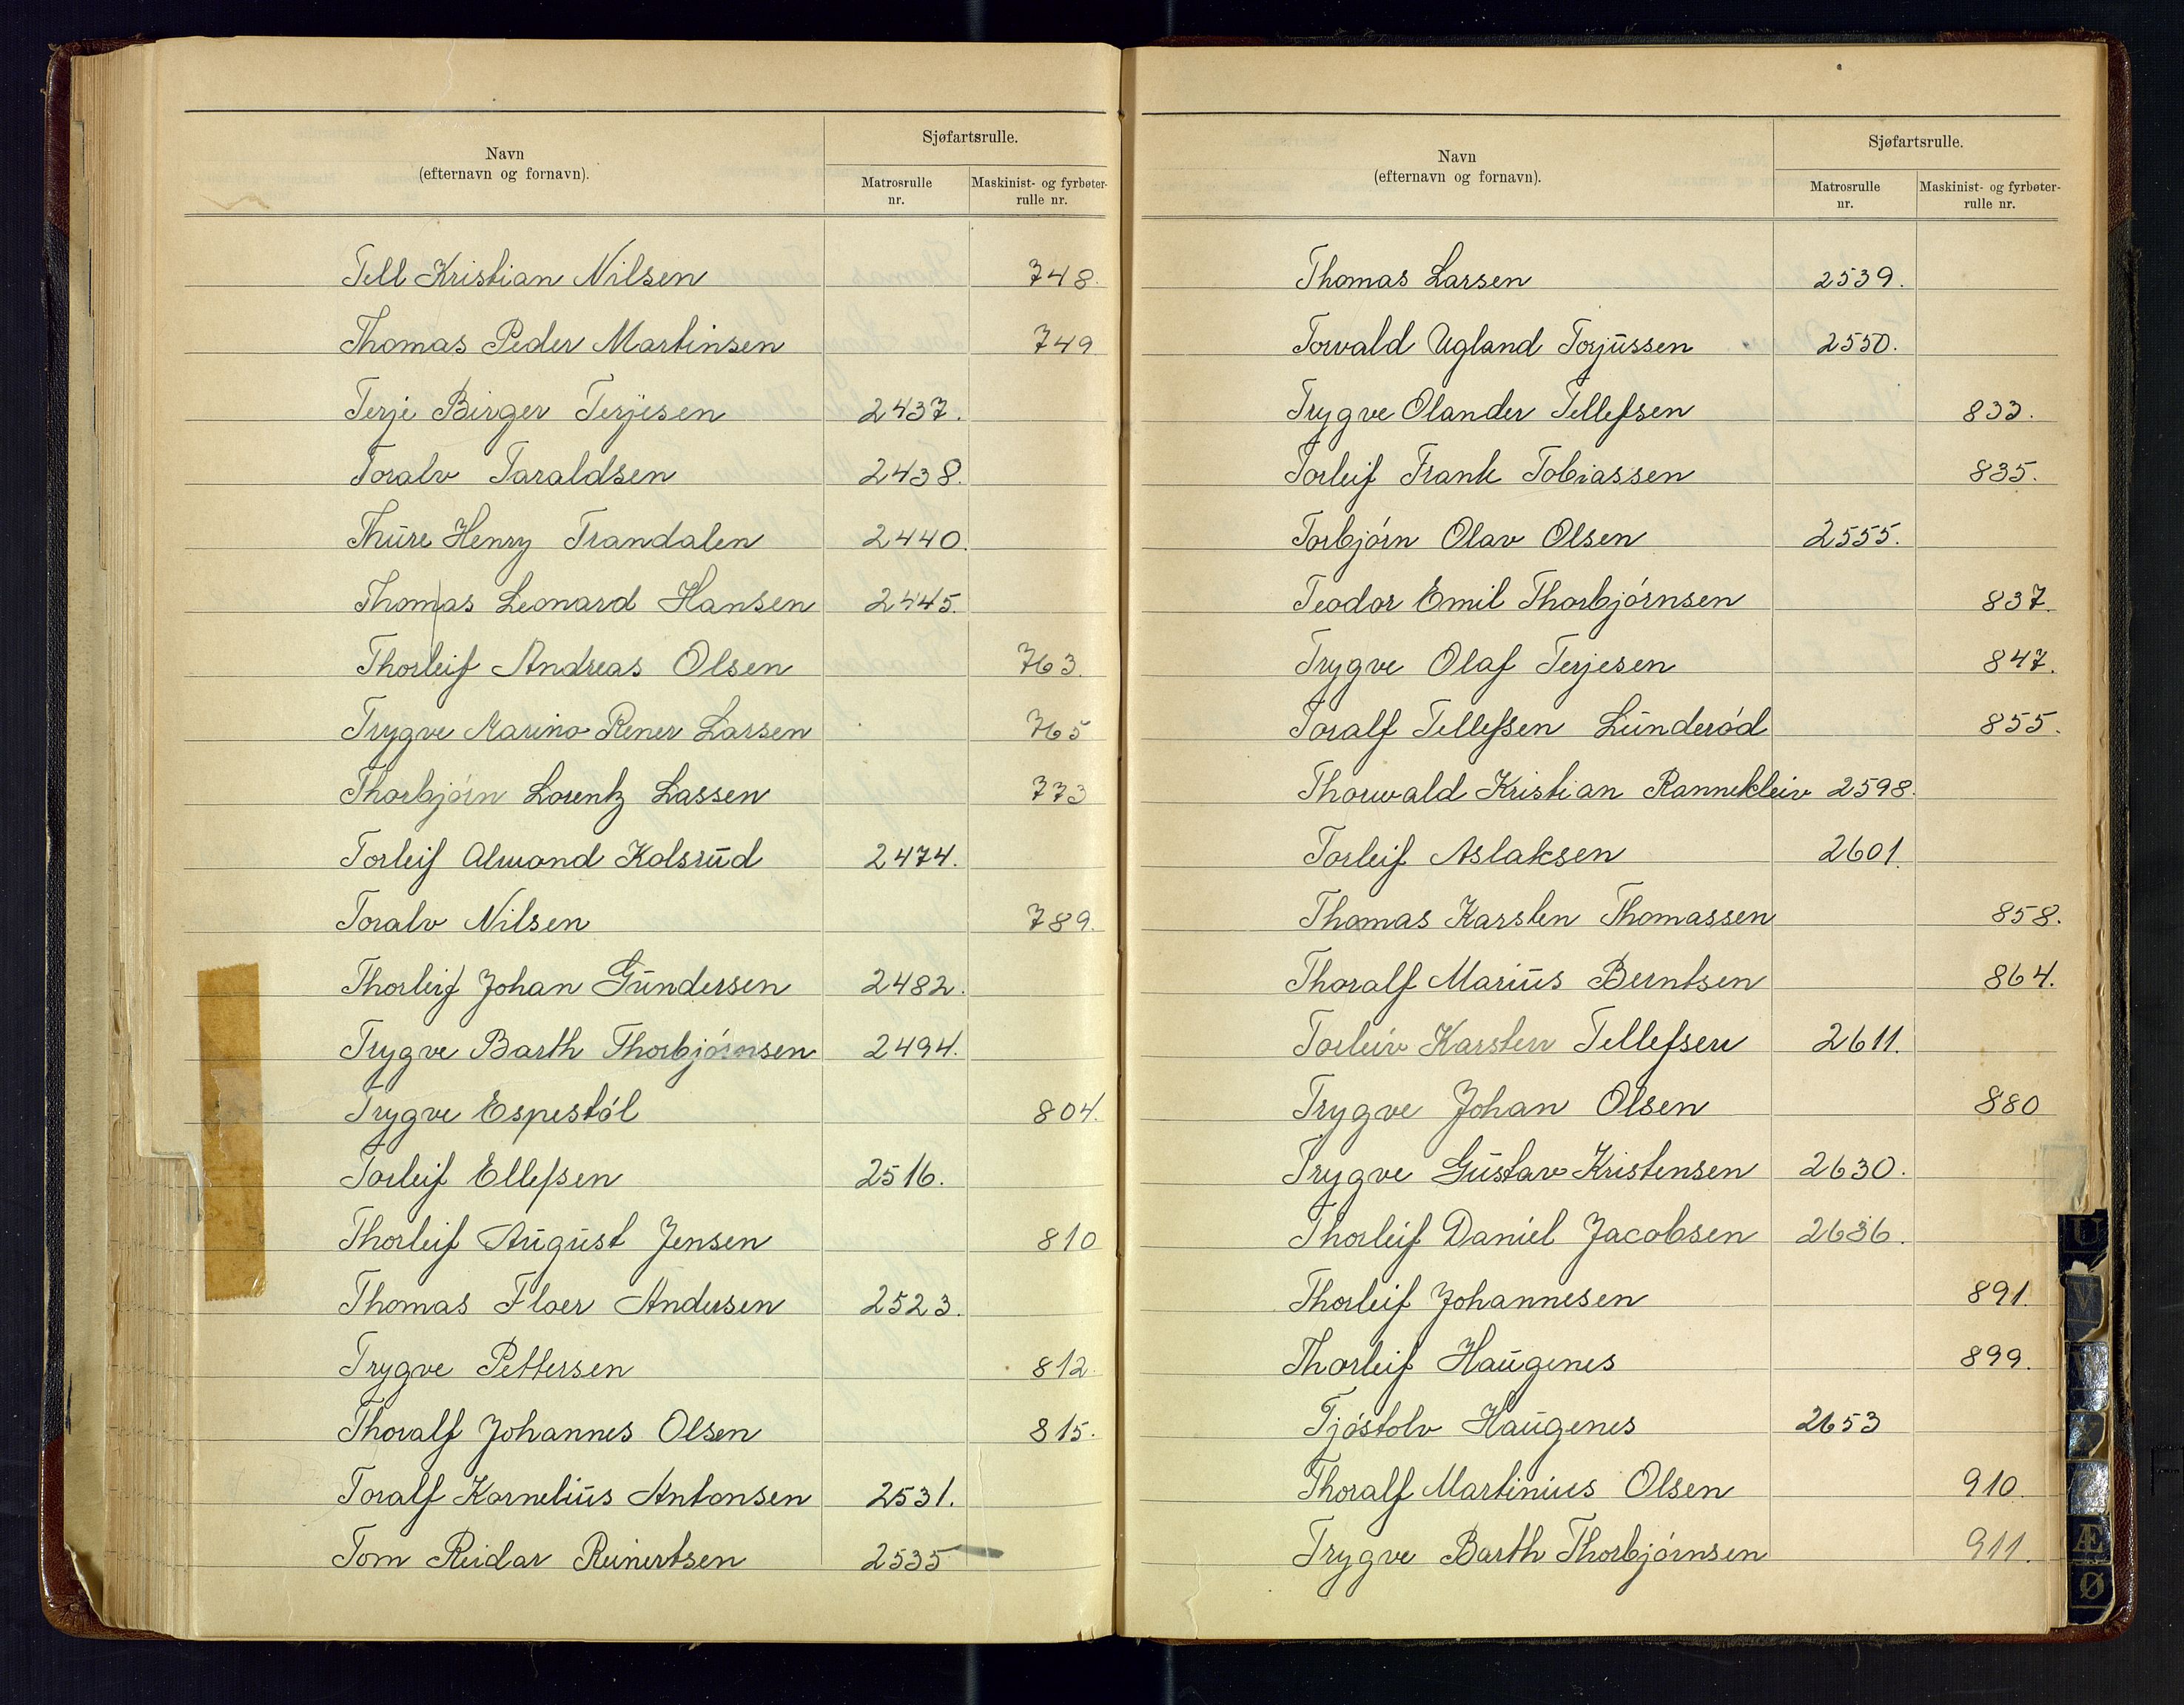 Navn
(efternavn og fornavn).
Sjøfartsrulle.
Matrosrulle
nr.
Maskinist- og fyrbøter-
rulle nr.
Tell Kristian Nilsen 748.
Thomas Peder Martinsen 749
Terje Birger Terjesen 2437.
Toralv Taraldsen 2438.
Thure Henry Trandalen 2440.
Thomas Leonard Hansen 2445.
Thorleif Andreas Olsen 763.
Trygve Marino Rener Larsen 765
Thorbjörn Lorentz Lassen 773
Torleif Almond Kolsrud 2474.
Toralv Nilsen 789.
Thorleif Johan Gundersen 2482.
Trygve Barth Thorbjörnsen 2494.
Trygve Espestöl 804.
Torleif Ellefsen 2516.
Thorleif August Jensen 810
Thomas Floer Andersen 2523.
Trygve Pettersen 812.
Thoralf Johannes Olsen 815.
Toralf Kornelius Antonsen 2531.
Tom Reidar Reinertsen 2535
Navn
(efternavn og fornavn).
Sjøfartsrulle.
Matrosrulle
nr.
Maskinist- og fyrbøter-
rulle nr.
Thomas Larsen 2539.
Torvald Ugland Torjussen 2550.
Trygve Olander Tellefsen 833.
Torleif Frank Tobiassen 835.
Torbjörn Olav Olsen 2555.
Teodor Emil Thorbjörnsen 837.
Trygve Olaf Terjesen 847.
Toralf Tellefsen Lunderöd 855.
Thorvald Kristian Rannekleiv 2598.
Torleif Aslaksen 2601.
Thomas Karsten Thomassen 858.
Thoralf Marius Berntsen 864.
Torleiv Karsten Tellefsen 2611.
Trygve Johan Olsen 880
Trygve Gustav Kristensen 2630.
Thorleif Daniel Jacobsen 2636.
Thorleif Johannesen 891.
Thorleif Haugenes 899.
Tjöstolv Haugenes 2653
Thoralf Martinius Olsen 910.
Trygve Barth Thorbjörnsen 911.
U
V
W
Æ
Ø